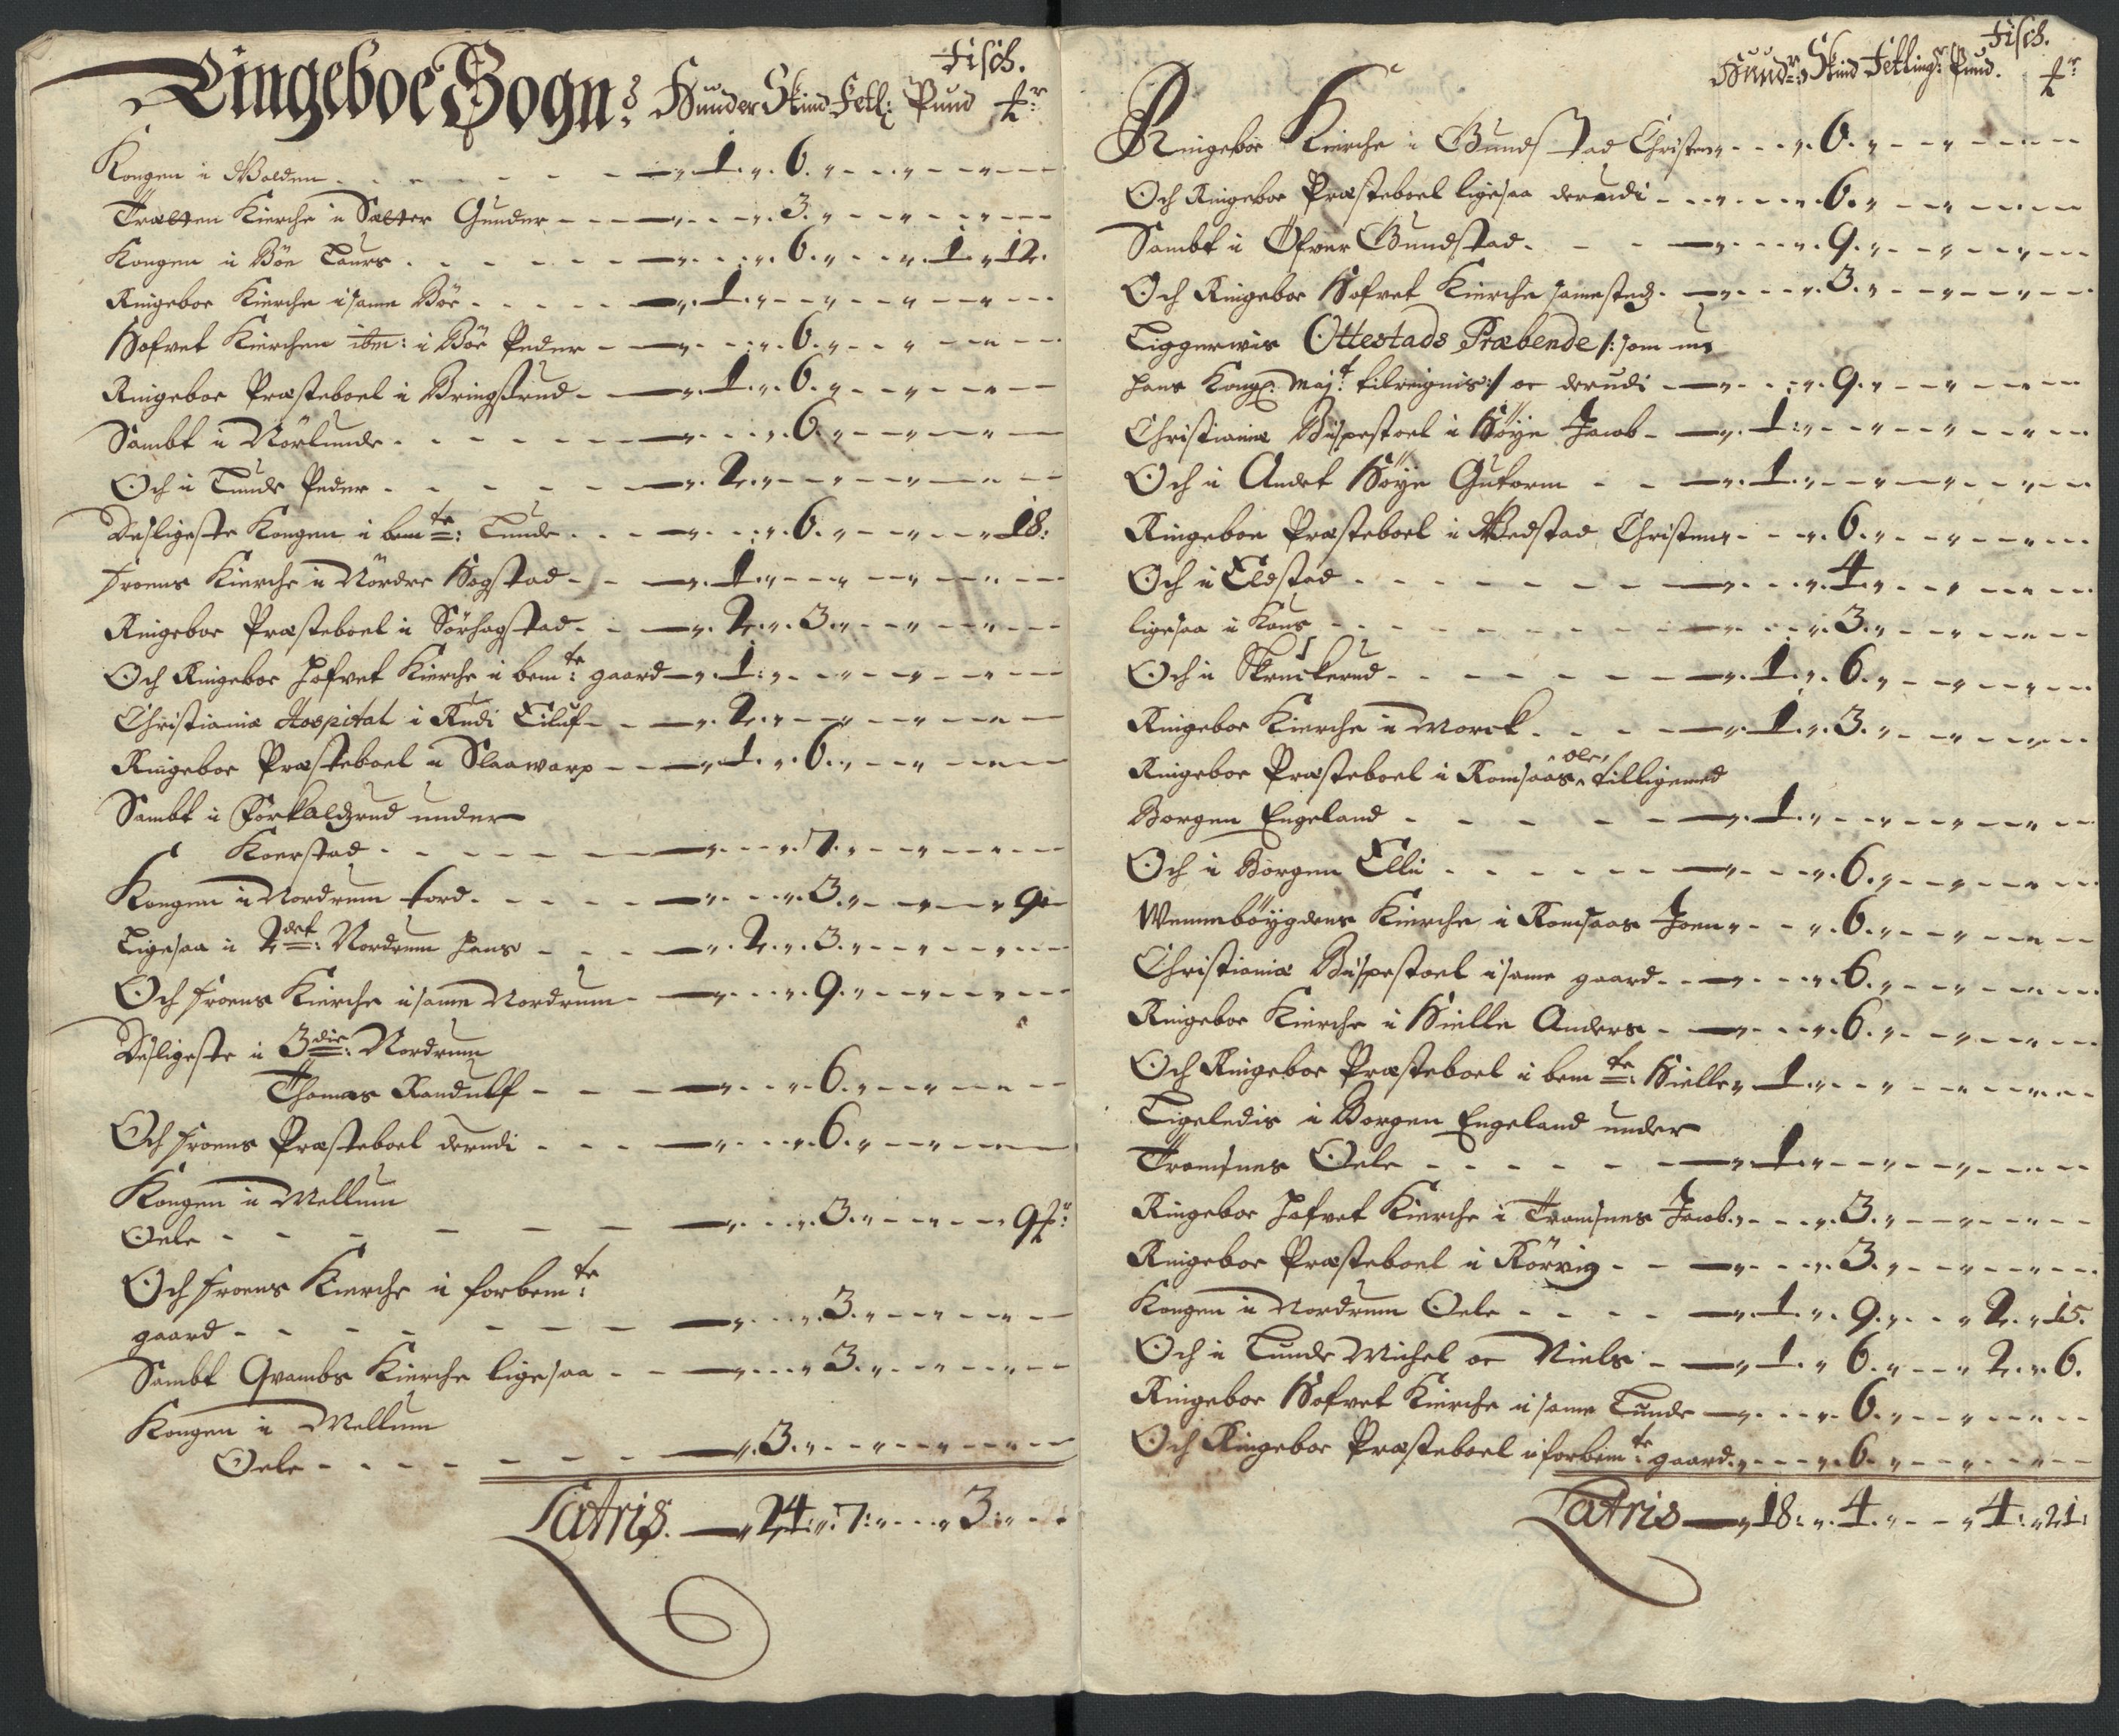 Fisch.
Ringeboe Sogn: Hunder Skind Fetl: Pund ℔r
Kongen i Wolden - - - 1 . 6 . - - -
Trætten Kirche i Sætter Gunder - - - 3 . - - -
Kongen i Böe Laurs - - - 6 . - - 1 . 12.
Ringeboe Kirche i same Böe - - - 1 . - - -
Hofvet Kirchen ibm: i Böe Peder - - - 6 . - - -
Ringeboe Præsteboel i Bringsrud - - 1 . 6 . - - -
Sambt i Nörlunde - - - 6 . - - -
Och i Lunde Peder - - - 2 . - - -
Desligeste Kongen i bemte: Lunde - - - 6 . - - 18:
Froens Kirche i Nördre Hogstad - - 1 . - - -
Ringeboe Præsteboel i Sörhogstad - - 2 . 3 . - - -
Och Ringeboe Hofvet Kirche i bemte: gaard - 1 : - - -
Christianiæ Hospital i Rudi Eiluf - - 2 . - - -
Ringeboe Præsteboel i Slaawarp - - 1 . 6 . - - -
Sambt i Forkaldzrud under
Koerstad - - - 7 . - - -
Kongen i Nordrum Tord - - - 3 . - - 9 -
Ligesaa i 2det: Nordrum Hans - - - 2 . 3 . - - -
Och Froens Kirche i same Nordrum - - - 9 . - - -
Desligeste i 3die: Nordrum
Thomas Randulf - - - 6 . - - -
Och Froens Præsteboel derudi - - - 6 . - - -
Kongen i Mellum
Oele - - - 3 . - - - 9 ℔r:
Och Froens Kirche i forbemte:
gaard - - - 3 . - - -
Sambt Qvambs Kirche ligesaa - - - 3 . - - -
Kongen i Mellum
Oele - - - 3 . - - -
Latris. - 24 : 7 : - - 3 : - -
Fisch.
Hundr: Skind Fetlingr Pund. ℔r
Ringeboe Kirche i Gundstad Christen - - - 6 . - - -
Och Ringeboe Præsteboel ligesaa derudi - - - 6 . - - -
Sambt i Öfver Gundstad - - - 9 . - - -
Och Ringeboe Hofvet Kirche samestedz - - - 3 . - - -
Liggerwis Ottestads Præbende /: som nu
Hans Kongl: Majt tilreignis :/ oc derudi - - - 9 . - - -
Christianiæ Bispestoel i Höye Jacob - - 1 : - - -
Och i Andet Höye Gutorm - - 1 . - - -
Ringeboe Præsteboel i Wedstad Christen - - - 6 . - - -
Och i Eldstad - - - 4 . - - -
ligesaa i Kaus - - - 3 . - - -
Och i Skruckerud - - - 1 . 6 . - - -
Ringeboe Kirche i Morck - - - 1 . 3 . - - -
Ringeboe Præsteboel i Romsaas ole tilligemed
Borgen Engeland - - - 1 . - - -
Och i Borgen Elli - - - 6 . - - -
Wennebøygdens Kirche i Romsaas Joen - - - 6 . - - -
Christianiæ Bispestoel i same gaard - - - 6 . - - -
Ringeboe Kirche i Hielle Anders - - - 6 . - - -
Och Ringeboe Præsteboel i bemte: Hielle 1 . - - -
Ligeledis i Borgen Engeland under
Tromsnes Oele - - - 1 . - - -
Ringeboe Hofvet Kirche i Tromsnes Jacob - - - 3 . - - -
Ringeboe Præsteboel i Rörvig - - - 3 . - - -
Kongen i Nordrum Oele - - - 1 . 9 . - - 2 . 15.
Och i Lunde Michel oc Niels - - 1 . 6 . - - 2 . 6.
Ringeboe Hofvet Kirche i same Lunde - - - 6 . - - -
Och Ringeboe Præsteboel i forbemte gaard - - - 6 . - - -
Latris - 18 : 4 . - - 4 : 21 :